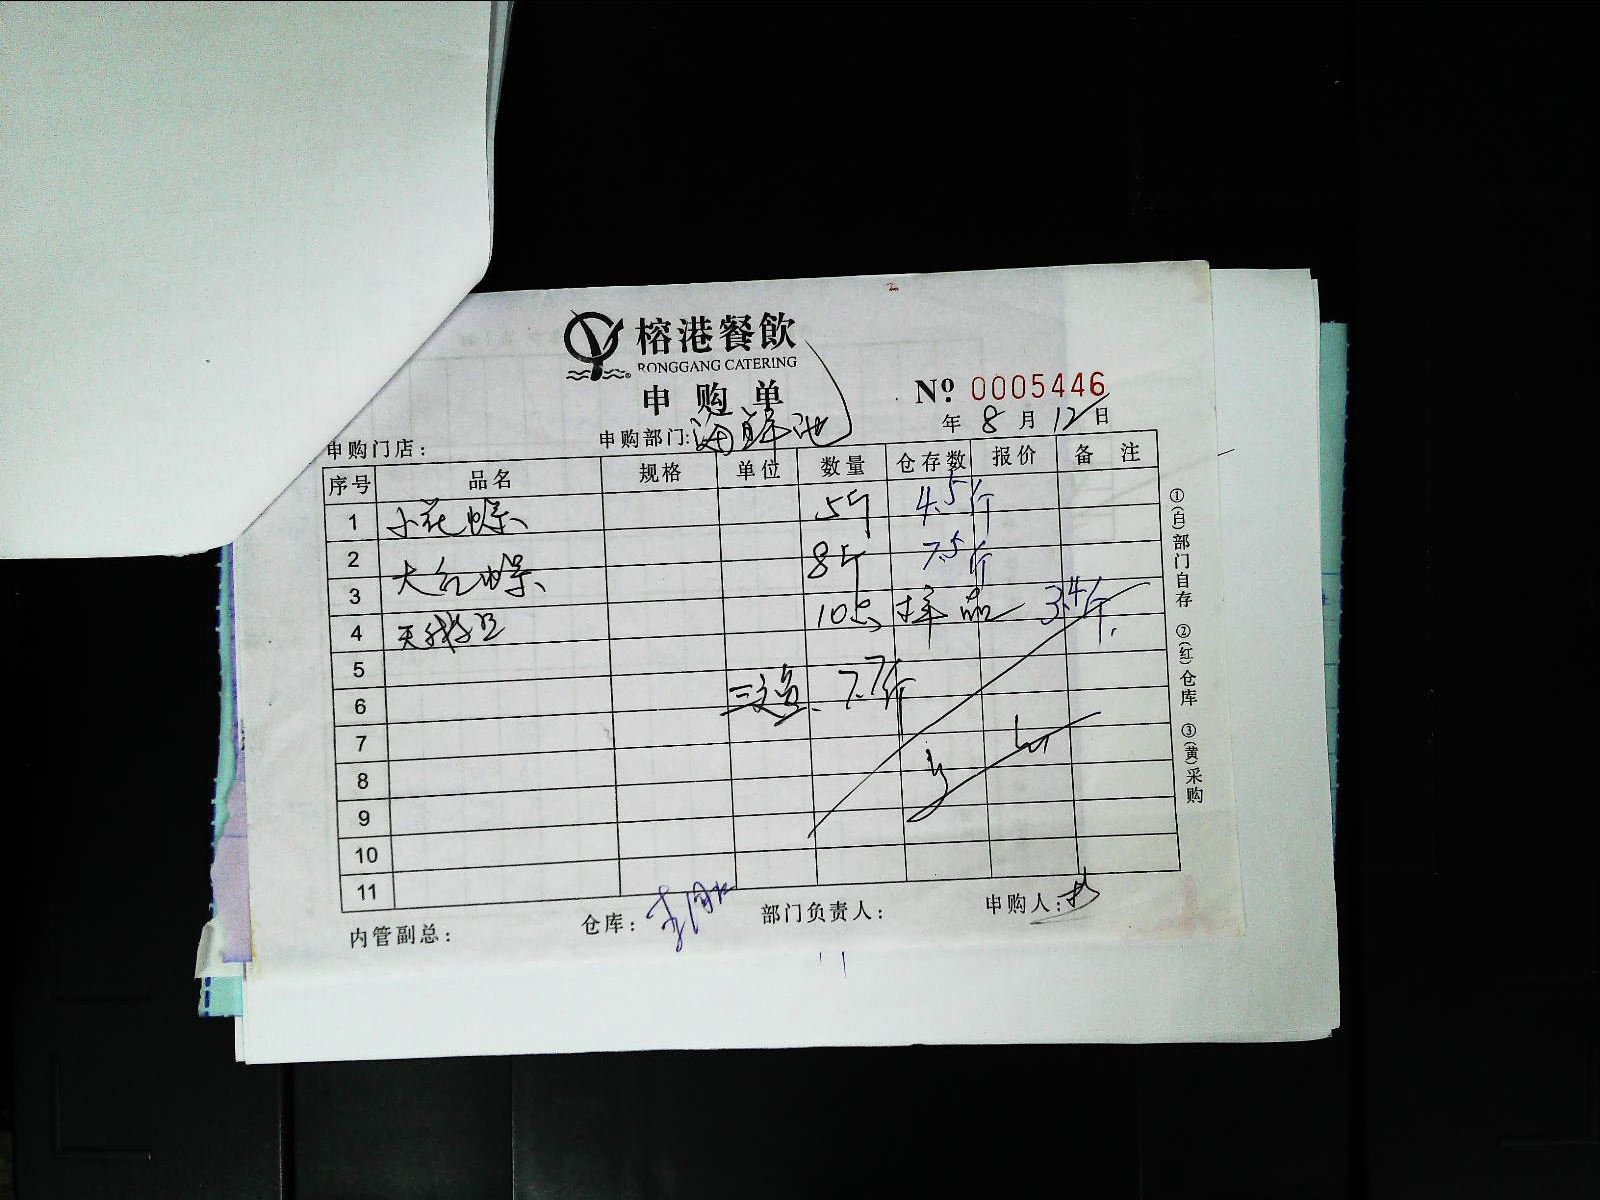 榕港餐飲
RONGGANG CATERING
申购单
Nº 0005446
年 8 月 12 日
申购门店： 申购部门：海鲜池
序号 品名 规格 单位 数量 仓存数 报价 备注
1 小花螺 5斤 4.5斤
2
3 大花螺 8斤 7.5斤
4 10只 样品 3.4斤
5
6 三文鱼 7.7斤
7
8
9
10
11
内管副总： 仓库： 部门负责人： 申购人：
①(白)部门自存 ②(红)仓库 ③(黄)采购